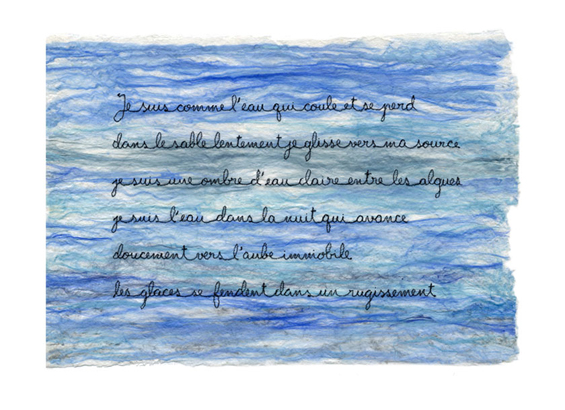 Je suis comme l'eau qui coule et se perd
dans le sable lentement je glisse vers ma source
je suis une ombre d'eau claire entre les algues
je suis l'eau dans la nuit qui avance
doucement vers l'aube immobile
les glaces se fendent dans un rugissement